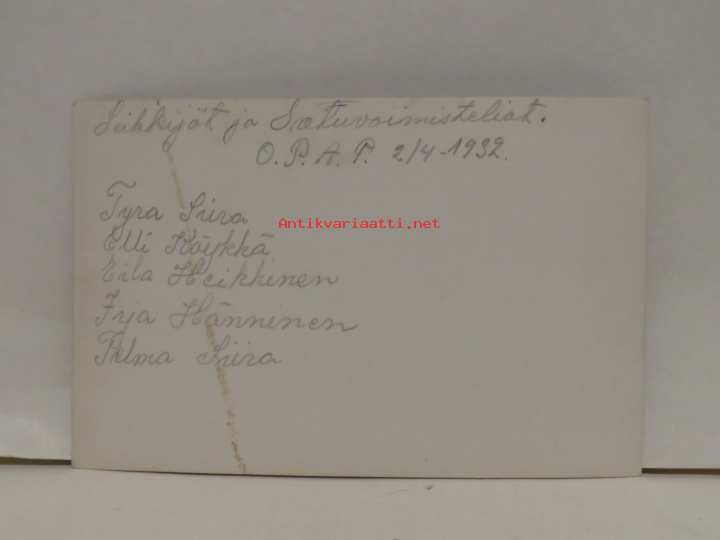 Siikkijöt ja Satuvoimisteliat.
O.P.A.P. 2/4-1932.
Tyra Siira
Antikvariaatti.net
Elli Köykkä
Eila Heikkinen
Irja Hänninen
Telma Siira